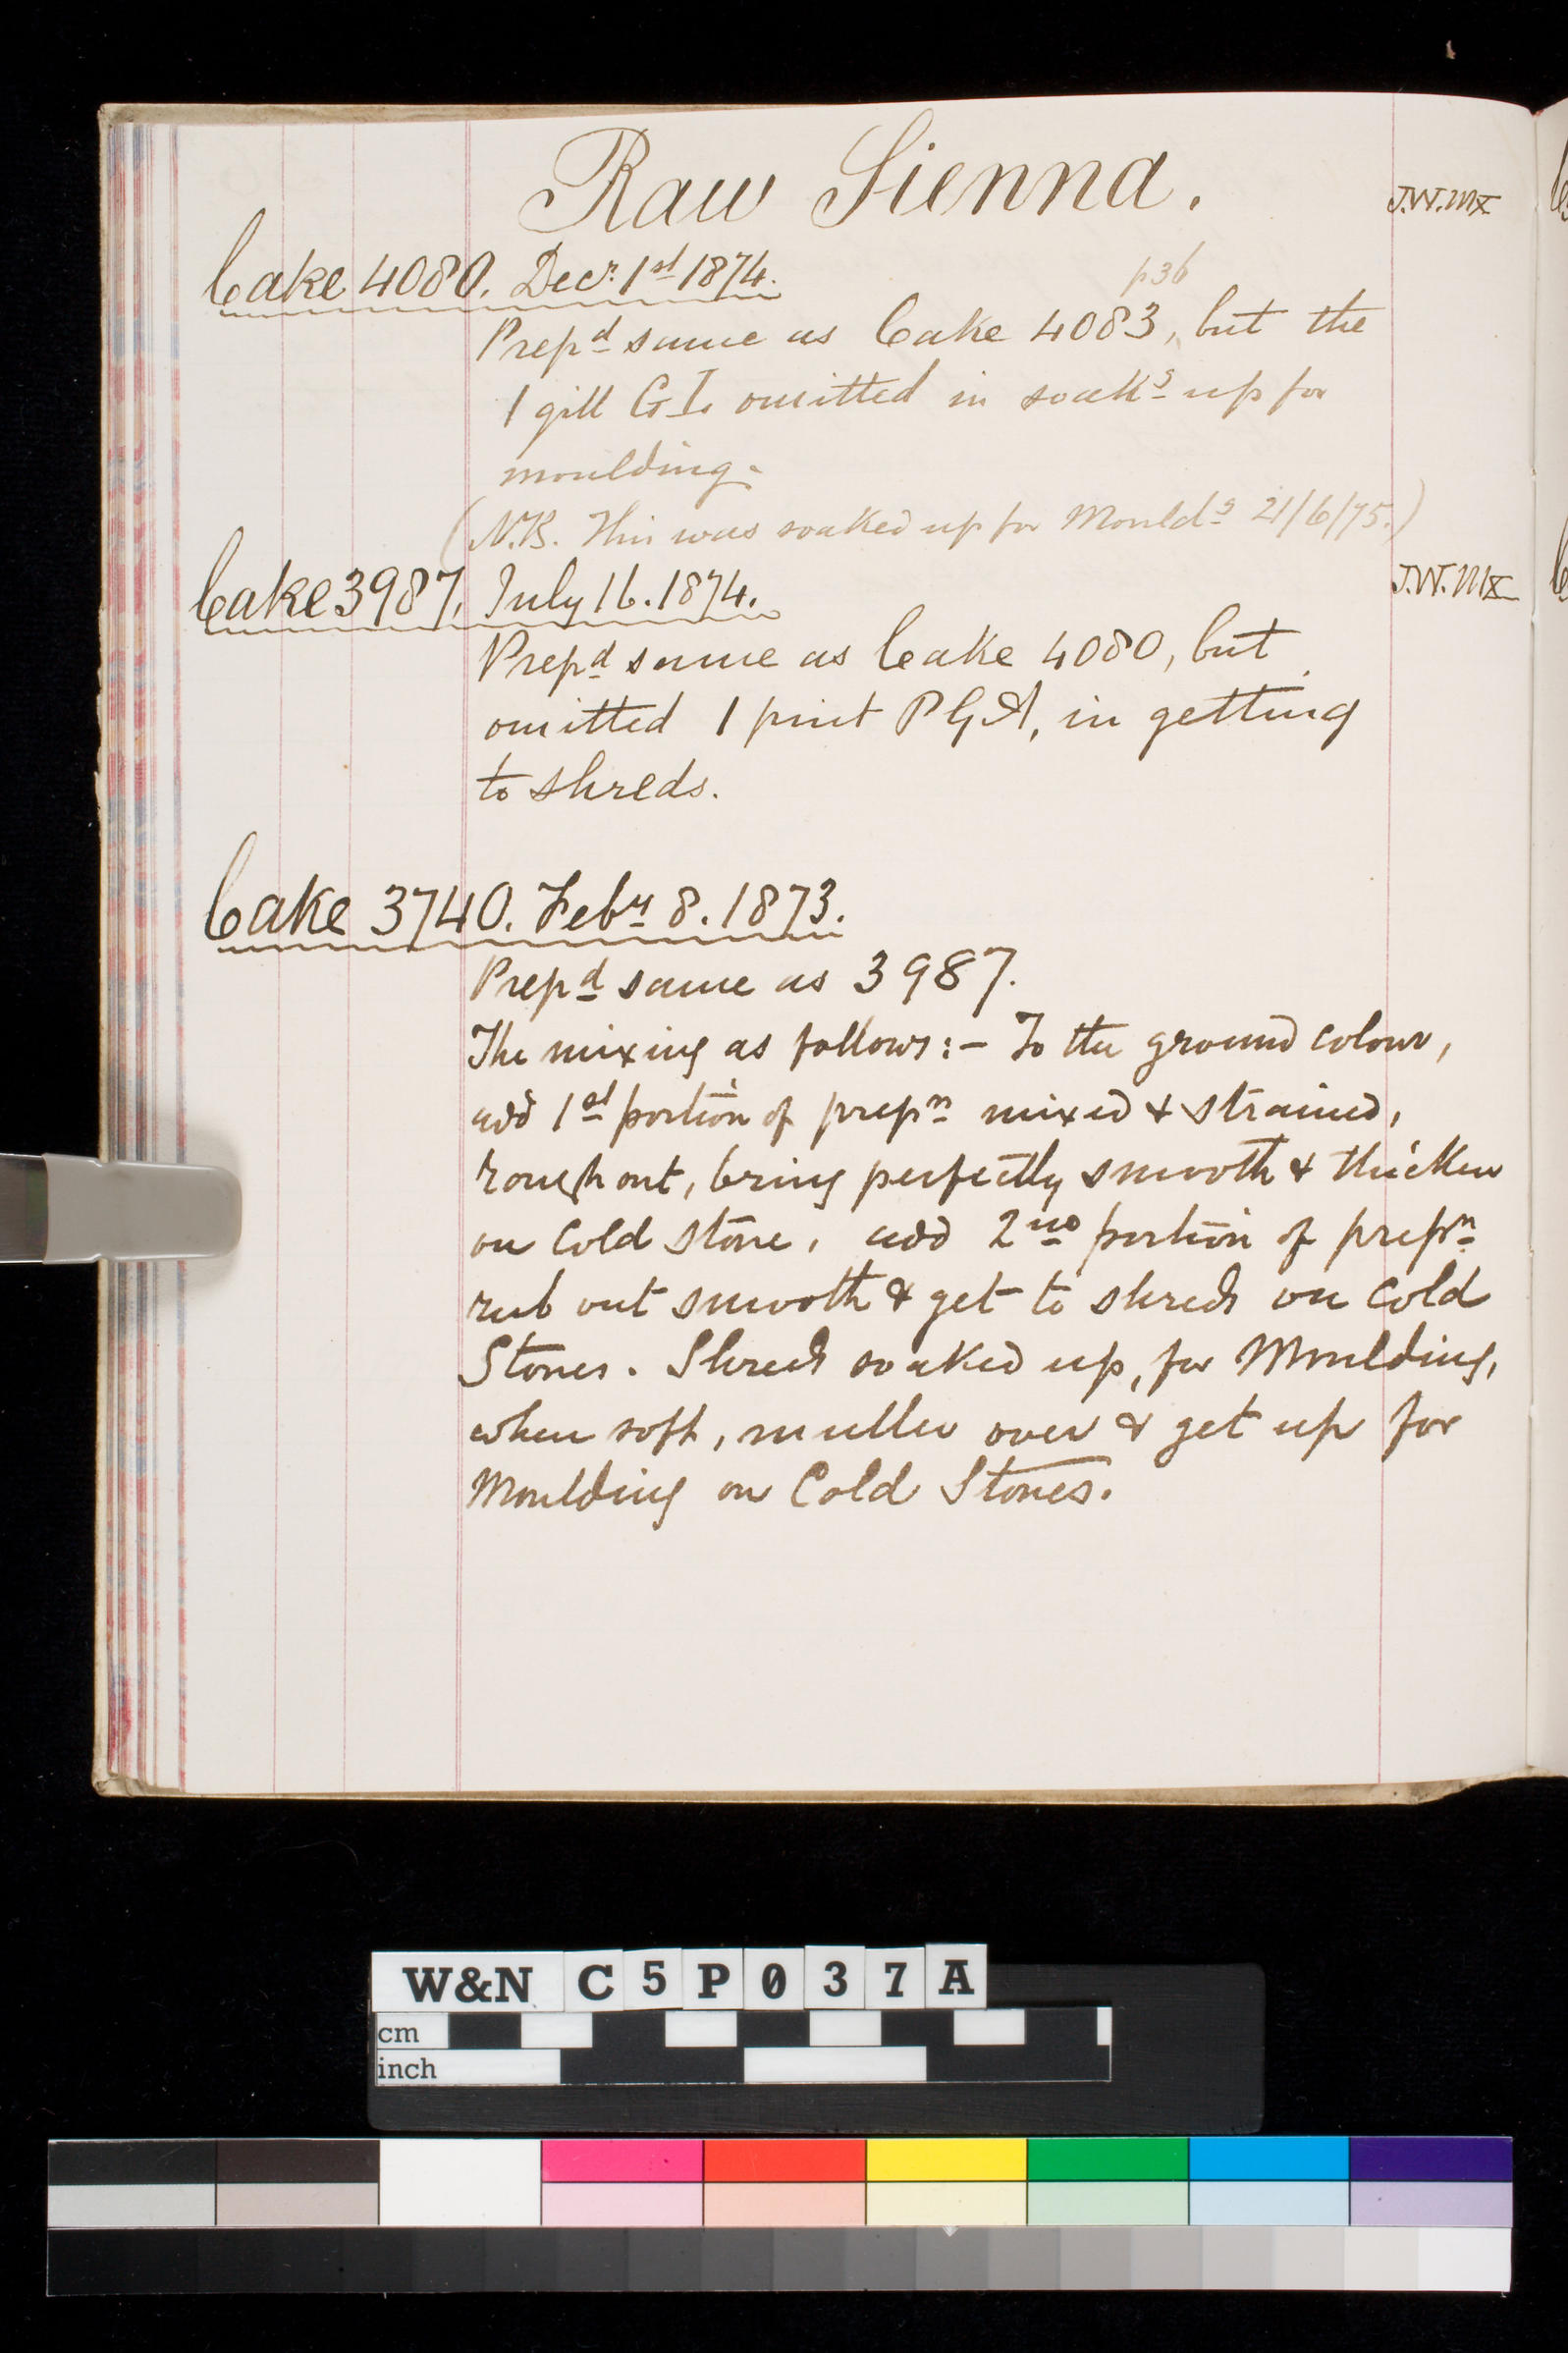 Raw Sienna.
J.W. Mx
Cake 4080. Decr. 1st 1874.
p36
Prepd same as Cake 4083, but the
1 gill G I. omitted in soakg up for
moulding.
(N.B. This was soaked up for Mouldg 21/6/75.)
Cake 3987. July 16. 1874.
J.W. Mx
Prepd same as Cake 4080, but
omitted 1 pint P G A, in getting
to shreds.
Cake 3740. Febry 8. 1873.
Prepd same as 3987.
The mixing as follows:- To the ground colour,
add 1st portion of prepn mixed & strained,
rough out, bring perfectly smooth & thicken
on cold stone, add 2nd portion of prepn
rub out smooth & get to shreds on cold
Stones. Shreds soaked up, for Moulding,
when soft, muller over & get up for
Moulding on Cold Stones.
W&N C5P037A
cm
inch